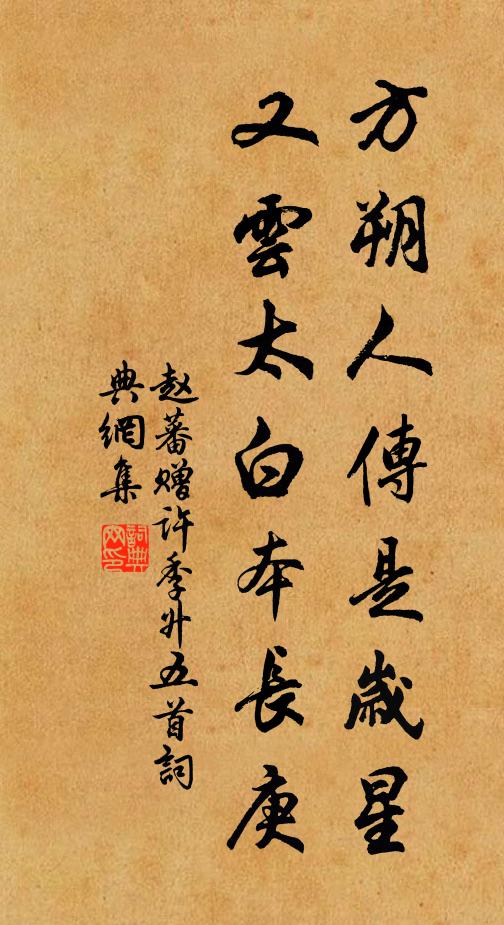 方朔人傳是歲星
又雲太白本長庚
赵蕃赠许季升五首詞
典網集
詞典
网印